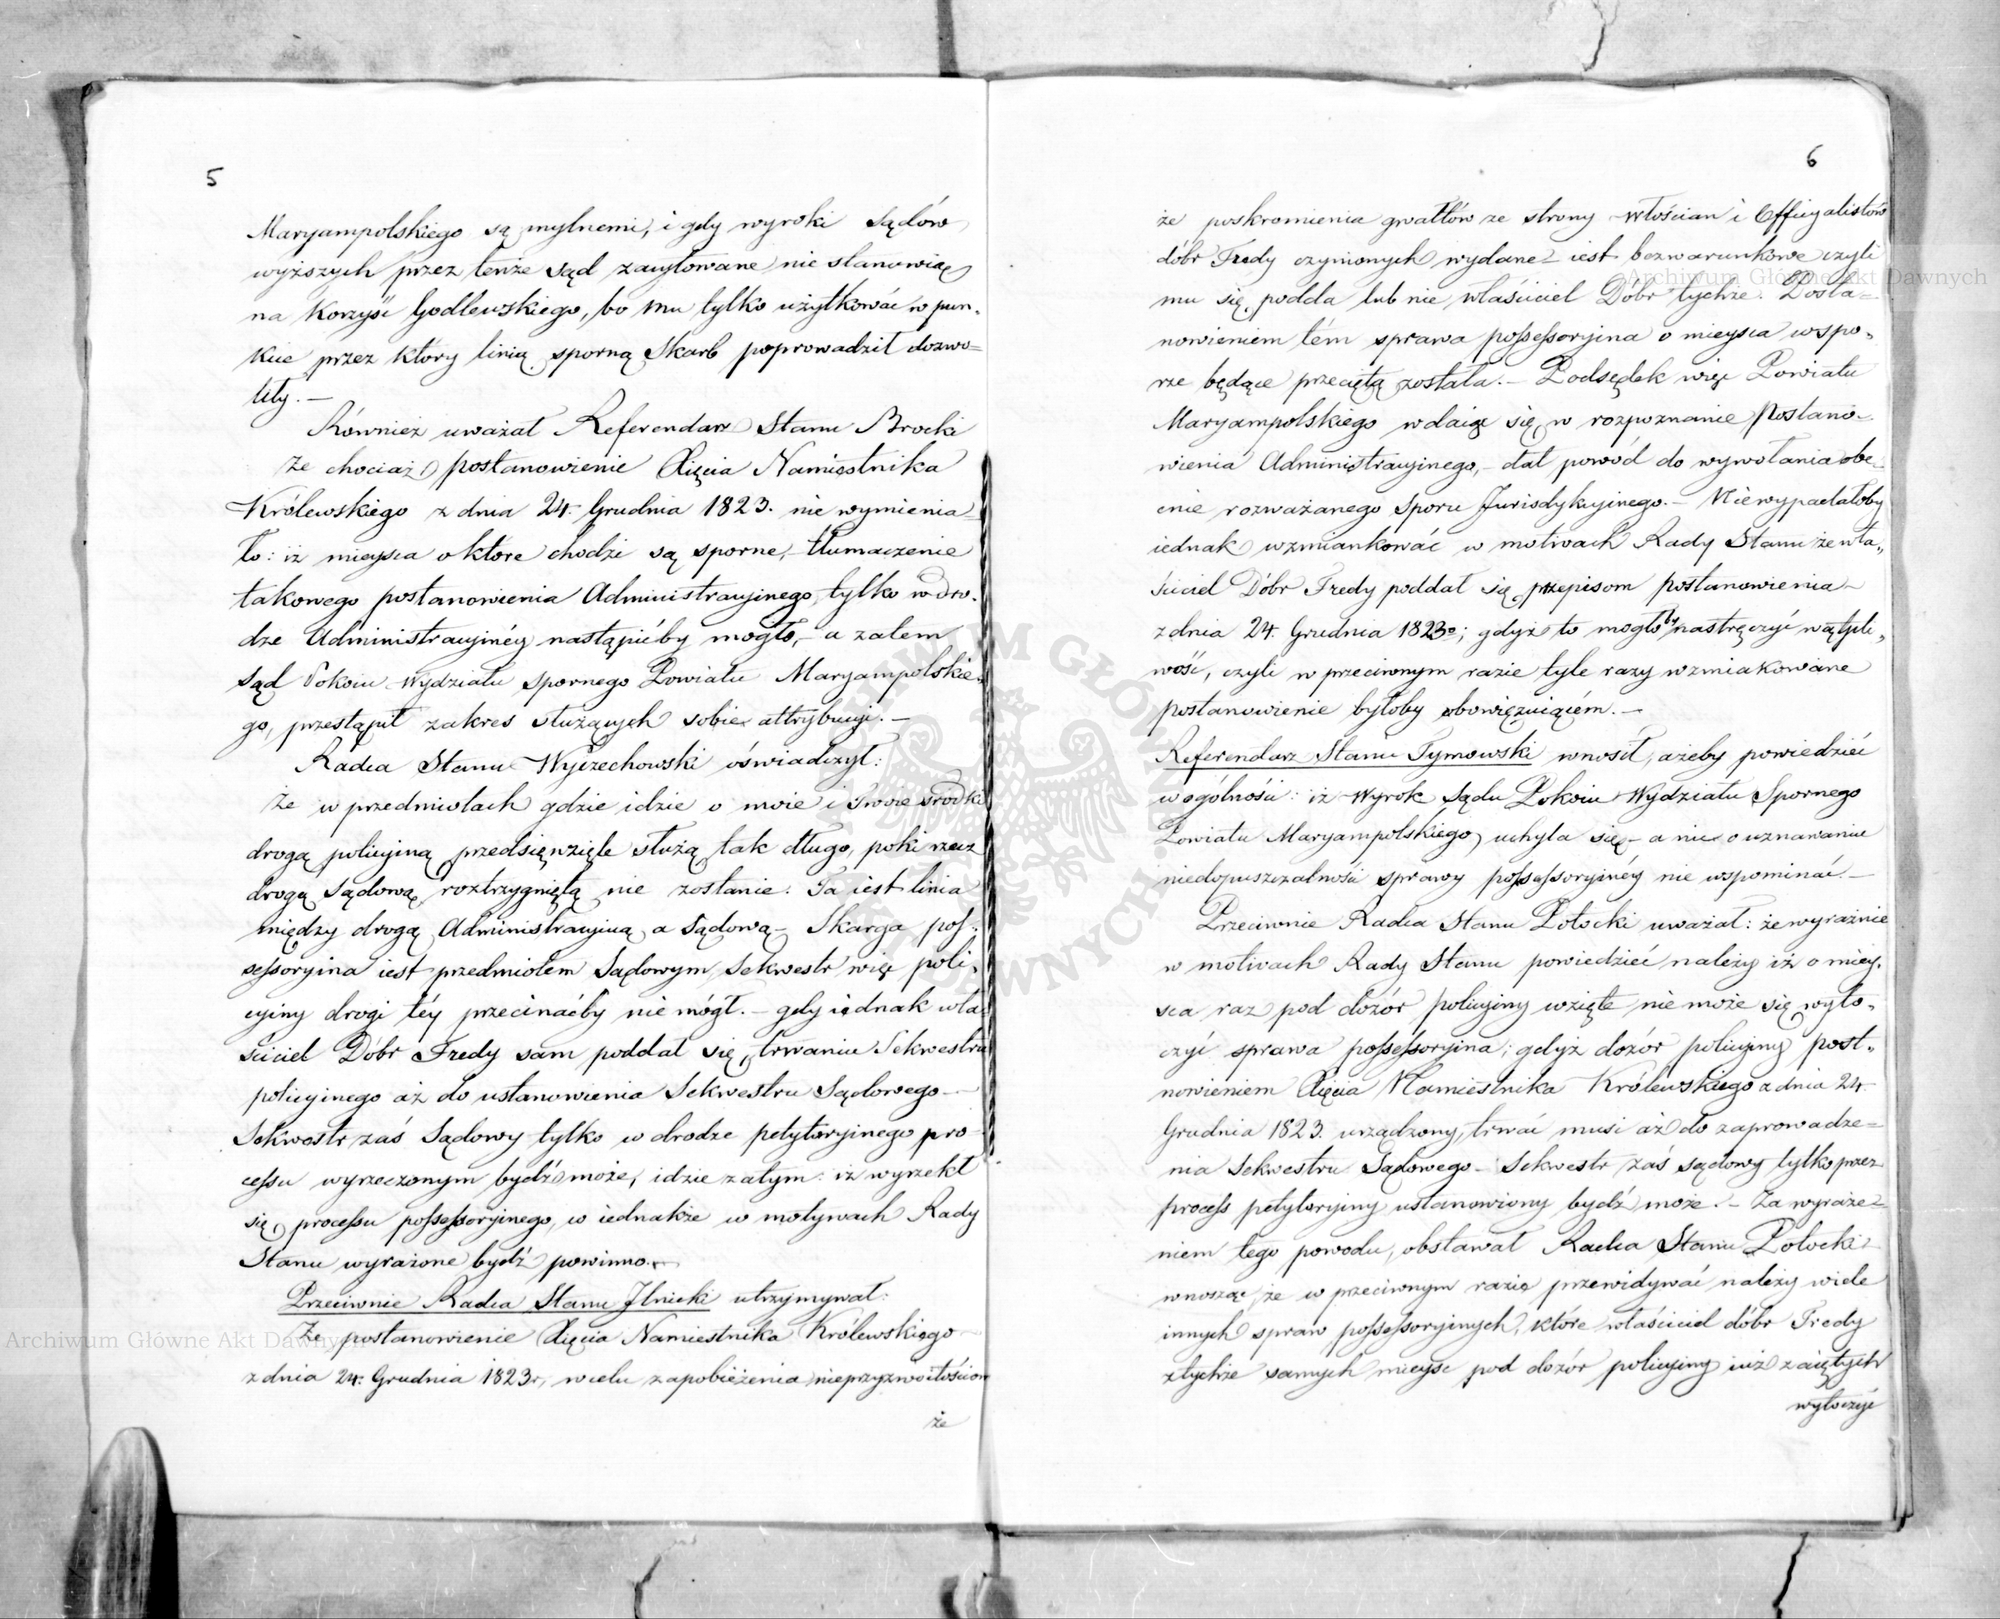 5
Maryampolskiego są mylnemi, i gdy wyroki Sądów
wyższych przez tenże Sąd zacytowane nie stanowią
na korzyść Godlewskiego, bo mu tylko użytkować w pun„
kcie przez który linią sporną Skarb poprowadził dozwo=
liły. —
Również uważał Referendarz Stanu Brocki
że chociaż postanowienie Xięcia Namiestnika
Królewskiego z dnia 24. Grudnia 1823. nie wymienia=
ło: iż mieysca o które chodzi są sporne, — tłumaczenie
takowego postanowienia Administracyinego, tylko w dro„
dze Administracyinéy nastąpićby mogło, — a zatem
Sąd Pokoiu Wydziału spornego Powiatu Maryampolskie„
go, przestąpił zakres służących sobie attrybucyi. —
Radca Stanu Wyczechowski oświadczył:
Że w przedmiotach gdzie idzie o moie i Twoie środki
drogą policyiną przedsięwzięte służą tak długo, poki rzecz
drogą Sądową roztrzygniętą nie zostanie. Ta iest linia
między drogą Administracyiną a Sądową — Skarga pos„
sessoryina iest przedmiotem Sądowym, Sekwestr więc poli„
cyiny drogi téy przecinaćby nie mógł. — gdy iednak wła„
ściciel Dóbr Fredy sam poddał się trwaniu Sekwestru
policyinego aż do ustanowienia Sekwestru Sądowego —
Sekwestr zaś Sądowy tylko w drodze petytoryinego pro=
cessu wyrzeczonym bydź może, idzie zatym: iż wyrzekł
się processu possessoryinego, co iednakże w motywach Rady
Stanu wyrażone bydź powinno. —
Przeciwnie Radca Stanu Ilnicki utrzymywał:
Że postanowienie Xięcia Namiestnika Królewskiego
z dnia 24. Grudnia 1823 r, w celu zapobieżenia nieprzyzwoitościom
że
6
że poskromienia gwałtów ze strony Włościan i Officyalistów
dóbr Fredy czynionych wydane — iest bezwarunkowe czyli
mu się podda lub nie właściciel Dóbr tychże. Posta=
nowieniem tém sprawa possessoryina o mieysca w spo„
rze będące przeciętą została. — Podsędek więc Powiatu
Maryampolskiego wdaiąc się w rozpoznanie Postano=
wienia Administracyinego, — dał powód do wywołania obe=
cnie rozważanego sporu Jurisdykcyinego. — Niewypadałoby
iednak wzmiankować w motivach Rady Stanu że wła„
ściciel Dóbr Fredy poddał się przepisom postanowienia —
z dnia 24. Grudnia 1823o; gdyż to mogłoby nastręczyć wątpli„
wość, czyli w przeciwnym razie tyle razy wzmiakowane
postanowienie byłoby obowięzuiącém. —
Referendarz Stanu Tymowski wnosił, ażeby powiedzieć
w ogólności: iż Wyrok Sądu Pokoiu Wydziału Spornego
Powiatu Maryampolskiego uchyla się — a nic o uznawaniu
niedopuszczalności sprawy possessoryinéy nie wspominać. —
Przeciwnie Radca Stanu Potocki uważał: że wyraźnie
w motivach Rady Stanu powiedzieć należy iż o miey„
sca raz pod dozór policyiny wzięte nie może się wyto„
czyć sprawa possessoryina; gdyż dozór policyiny post„
nowieniem Xięcia Namiestnika Królewskiego z dnia 24.
Grudnia 1823. urządzony, trwać musi aż do zaprowadze=
nia Sekwestru Sądowego — Sekwestr zaś sądowy tylko przez
process petytoryiny ustanowiony bydź może. — Za wyraże=
niem tego powodu, obstawał Radca Stanu Potocki
wnosząc, że w przeciwnym razie przewidywać należy wiele
innych spraw possessoryinych, które właściciel dóbr Fredy
z tychże samych mieysc pod dozór policyiny iuż zaiętych
wytoczyć
Archiwum Główne Akt Dawnych
Archiwum Główne Akt Dawnych
ARCHIWUM GŁÓWNE AKT DAWNYCH